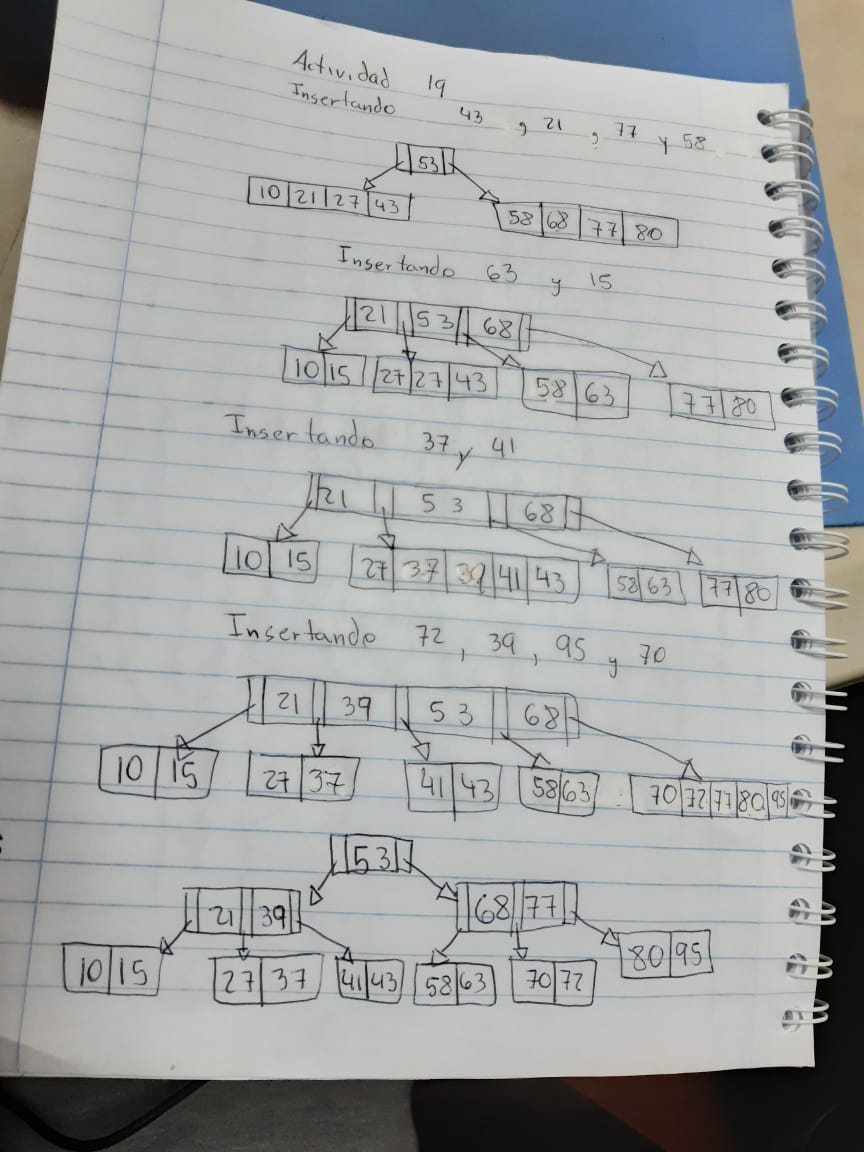 Actividad 19
Insertando 43, 21, 77 y 58
53
10 21 27 43
58 68 77 80
Insertando 63 y 15
21 53 68
10 15
27 27 43
58 63
77 80
Insertando 37 y 41
21 53 68
10 15
27 37 39 41 43
58 63
77 80
Insertando 72, 39, 95 y 70
21 39 53 68
10 15
27 37
41 43
58 63
70 72 77 80 95
53
21 39
68 77
10 15
27 37
41 43
58 63
70 72
80 95